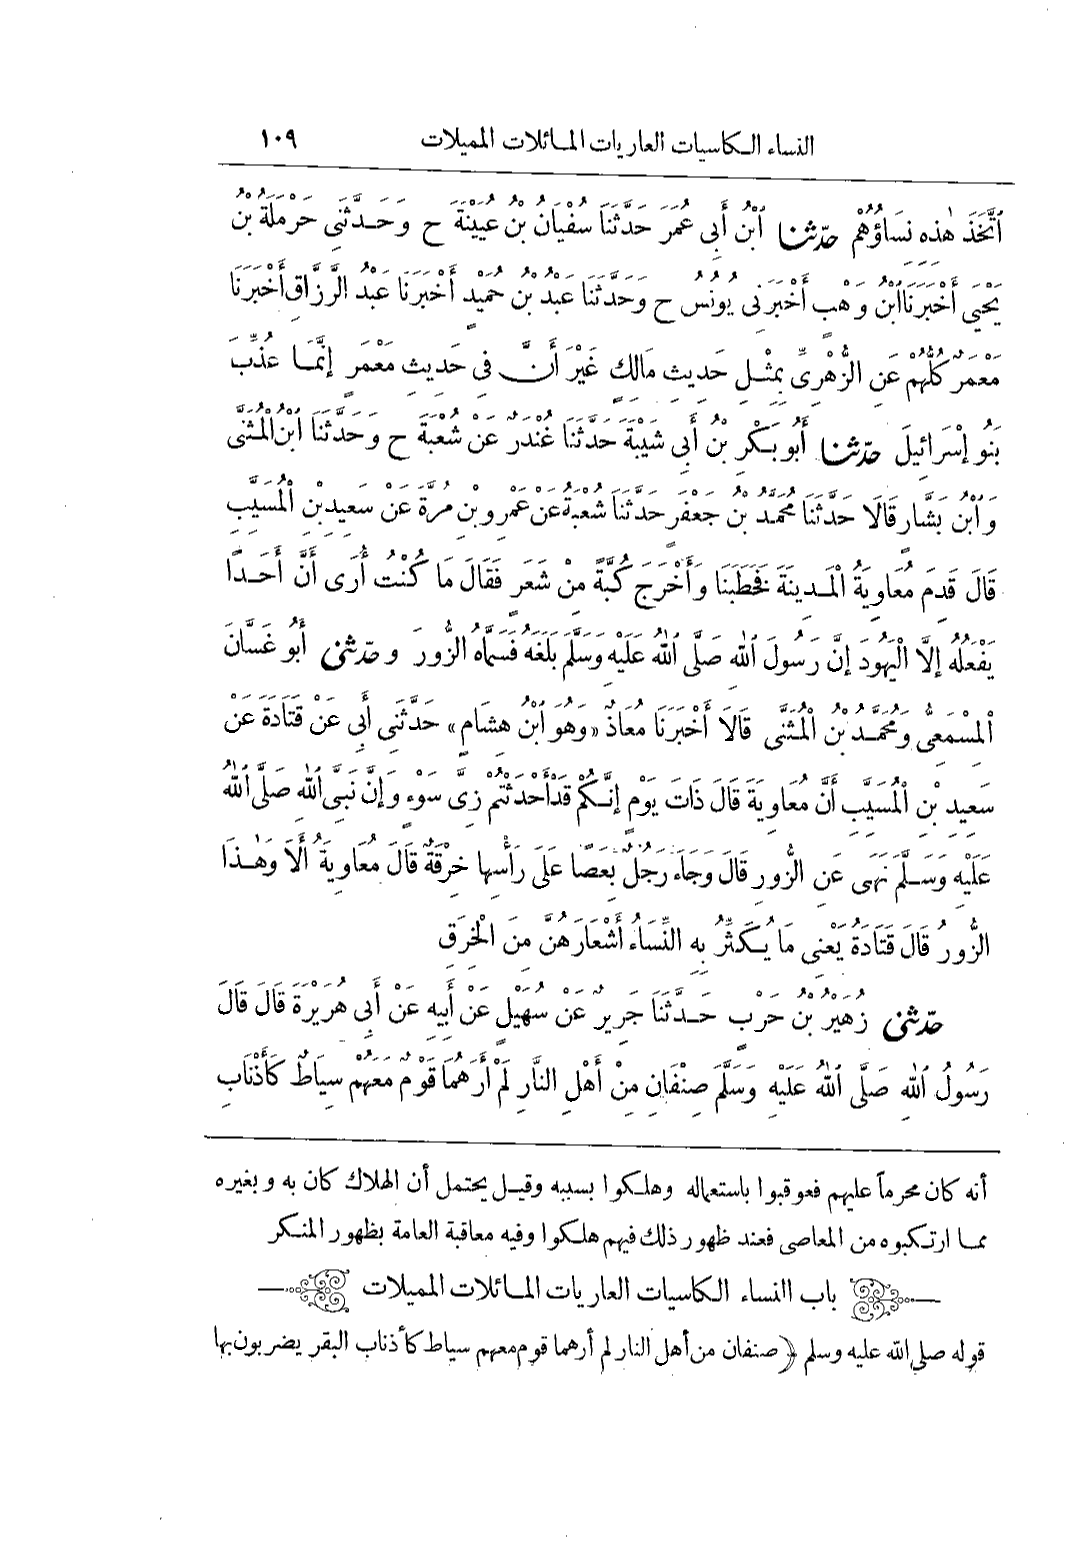 النساء الكاسيات العاريات المائلات المميلات ١٠٩
ٱتَّخَذَ هٰذِهِ نِسَاؤُهُمْ حدّثنا ٱبْنُ أَبِي عُمَرَ حَدَّثَنَا سُفْيَانُ بْنُ عُيَيْنَةَ ح وَحَدَّثَنِي حَرْمَلَةُ بْنُ
يَحْيَى أَخْبَرَنَا ٱبْنُ وَهْبٍ أَخْبَرَنِي يُونُسُ ح وَحَدَّثَنَا عَبْدُ بْنُ حُمَيْدٍ أَخْبَرَنَا عَبْدُ الرَّزَّاقِ أَخْبَرَنَا
مَعْمَرٌ كُلُّهُمْ عَنِ الزُّهْرِيِّ بِمِثْلِ حَدِيثِ مَالِكٍ غَيْرَ أَنَّ فِي حَدِيثِ مَعْمَرٍ إِنَّمَا عُذِّبَ
بَنُو إِسْرَائِيلَ حدّثنا أَبُو بَكْرِ بْنُ أَبِي شَيْبَةَ حَدَّثَنَا غُنْدَرٌ عَنْ شُعْبَةَ ح وَحَدَّثَنَا ٱبْنُ الْمُثَنَّى
وَٱبْنُ بَشَّارٍ قَالَا حَدَّثَنَا مُحَمَّدُ بْنُ جَعْفَرٍ حَدَّثَنَا شُعْبَةُ عَنْ عَمْرِو بْنِ مُرَّةَ عَنْ سَعِيدِ بْنِ الْمُسَيَّبِ
قَالَ قَدِمَ مُعَاوِيَةُ الْمَدِينَةَ فَخَطَبَنَا وَأَخْرَجَ كُبَّةً مِنْ شَعَرٍ فَقَالَ مَا كُنْتُ أُرَى أَنَّ أَحَدًا
يَفْعَلُهُ إِلَّا الْيَهُودَ إِنَّ رَسُولَ ٱللهِ صَلَّى ٱللهُ عَلَيْهِ وَسَلَّمَ بَلَغَهُ فَسَمَّاهُ الزُّورَ وحدّثني أَبُو غَسَّانَ
ٱلْمِسْمَعِيُّ وَمُحَمَّدُ بْنُ الْمُثَنَّى قَالَا أَخْبَرَنَا مُعَاذٌ «وَهُوَ ٱبْنُ هِشَامٍ» حَدَّثَنِي أَبِي عَنْ قَتَادَةَ عَنْ
سَعِيدِ بْنِ الْمُسَيَّبِ أَنَّ مُعَاوِيَةَ قَالَ ذَاتَ يَوْمٍ إِنَّكُمْ قَدْ أَحْدَثْتُمْ زِيَّ سَوْءٍ وَإِنَّ نَبِيَّ ٱللهِ صَلَّى ٱللهُ
عَلَيْهِ وَسَلَّمَ نَهَى عَنِ الزُّورِ قَالَ وَجَاءَ رَجُلٌ بِعَصًا عَلَى رَأْسِهَا خِرْقَةٌ قَالَ مُعَاوِيَةُ أَلَا وَهٰذَا
الزُّورُ قَالَ قَتَادَةُ يَعْنِي مَا يُكَثِّرُ بِهِ النِّسَاءُ أَشْعَارَهُنَّ مِنَ الْخِرَقِ
حدّثني زُهَيْرُ بْنُ حَرْبٍ حَدَّثَنَا جَرِيرٌ عَنْ سُهَيْلٍ عَنْ أَبِيهِ عَنْ أَبِي هُرَيْرَةَ قَالَ قَالَ
رَسُولُ ٱللهِ صَلَّى ٱللهُ عَلَيْهِ وَسَلَّمَ صِنْفَانِ مِنْ أَهْلِ النَّارِ لَمْ أَرَهُمَا قَوْمٌ مَعَهُمْ سِيَاطٌ كَأَذْنَابِ
أنه كان محرماً عليهم فعوقبوا باستعماله وهلكوا بسببه وقيل يحتمل أن الهلاك كان به وبغيره
مما ارتكبوه من المعاصى فعند ظهور ذلك فيهم هلكوا وفيه معاقبة العامة بظهور المنكر
باب النساء الكاسيات العاريات المائلات المميلات
قوله صلى الله عليه وسلم ﴿صنفان من أهل النار لم أرهما قوم معهم سياط كأذناب البقر يضربون بها